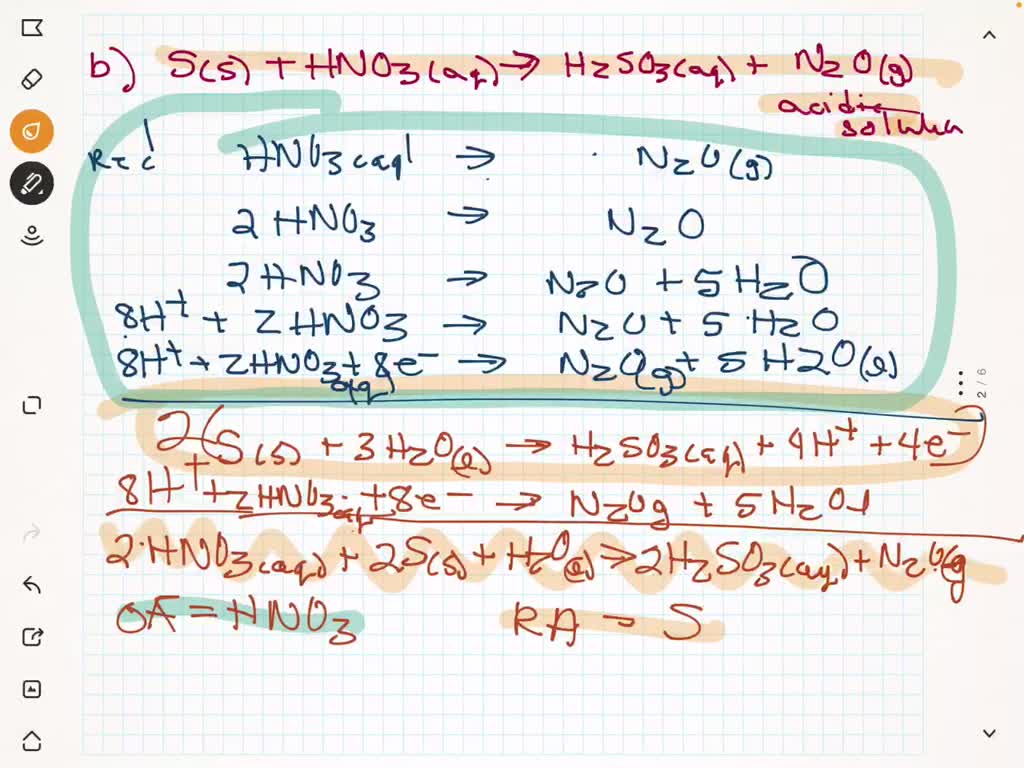 b) S(s) + HNO3(aq) → H2SO3(aq) + N2O(g)
acidic
solution
Red HNO3(aq) → N2O(g)
2HNO3 → N2O
2HNO3 → N2O + 5H2O
8H+ + 2HNO3 → N2O + 5H2O
8H+ + 2HNO3(aq) + 8e- → N2O(g) + 5H2O(l)
2(S(s) + 3H2O(l) → H2SO3(aq) + 4H+ + 4e-)
8H+ + 2HNO3 aq + 8e- → N2O g + 5H2O l
2HNO3(aq) + 2S(s) + H2O(l) → 2H2SO3(aq) + N2O(g
OA = HNO3 RA = S
2/6